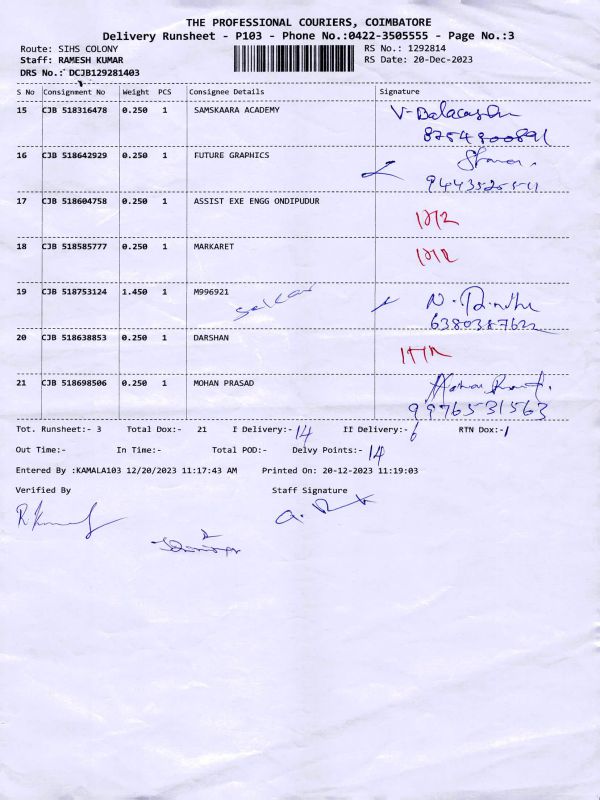 THE PROFESSIONAL COURIERS, COIMBATORE
Delivery Runsheet - P103 - Phone No.:0422-3505555 - Page No.:3
Route: SIHS COLONY RS No.: 1292814
Staff: RAMESH KUMAR RS Date: 20-Dec-2023
DRS No.: DCJB129281403
S No Consignment No Weight PCS Consignee Details Signature
15 CJB 518316478 0.250 1 SAMSKAARA ACADEMY
8754800891
16 CJB 518642929 0.250 1 FUTURE GRAPHICS
17 CJB 518604758 0.250 1 ASSIST EXE ENGG ONDIPUDUR
18 CJB 518585777 0.250 1 MARKARET
19 CJB 518753124 1.450 1 M996921
6380387622
20 CJB 518638853 0.250 1 DARSHAN
21 CJB 518698506 0.250 1 MOHAN PRASAD
9976531563
Tot. Runsheet:- 3 Total Dox:- 21 I Delivery:- 14 II Delivery:- 6 RTN Dox:- 1
Out Time:- In Time:- Total POD:- Delvy Points:- 14
Entered By :KAMALA103 12/20/2023 11:17:43 AM Printed On: 20-12-2023 11:19:03
Verified By Staff Signature